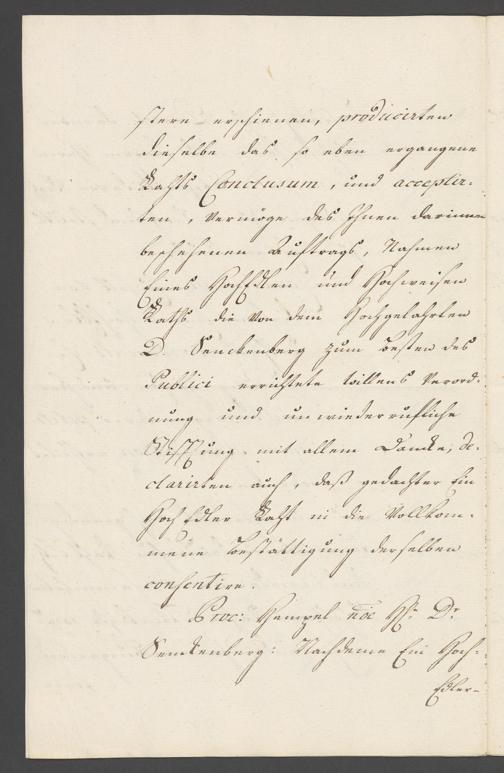 stere erschienen, producirten
dieselbe das so eben ergangene
Rahts Conclusum, und acceptir-
ten, vermöge des Ihnen darinnen
beschehenen Auftrags, Nahmen
Eines HochEdlen und Hochweisen
Raths die von dem Hochgelahrten
D. Senckenberg zum Besten des
Publici errichtete Willens Verord-
nung und unwiederrufliche
Stifftung mit allem Dancke, de-
clarirten auch, daß gedachter Ein
HochEdler Raht in die Vollkom-
mene Bestättigung derselben
consentire.
Proc: Hempel nõe H: Dr.
Senckenberg: Nachdeme Ein Hoch-
Edler-